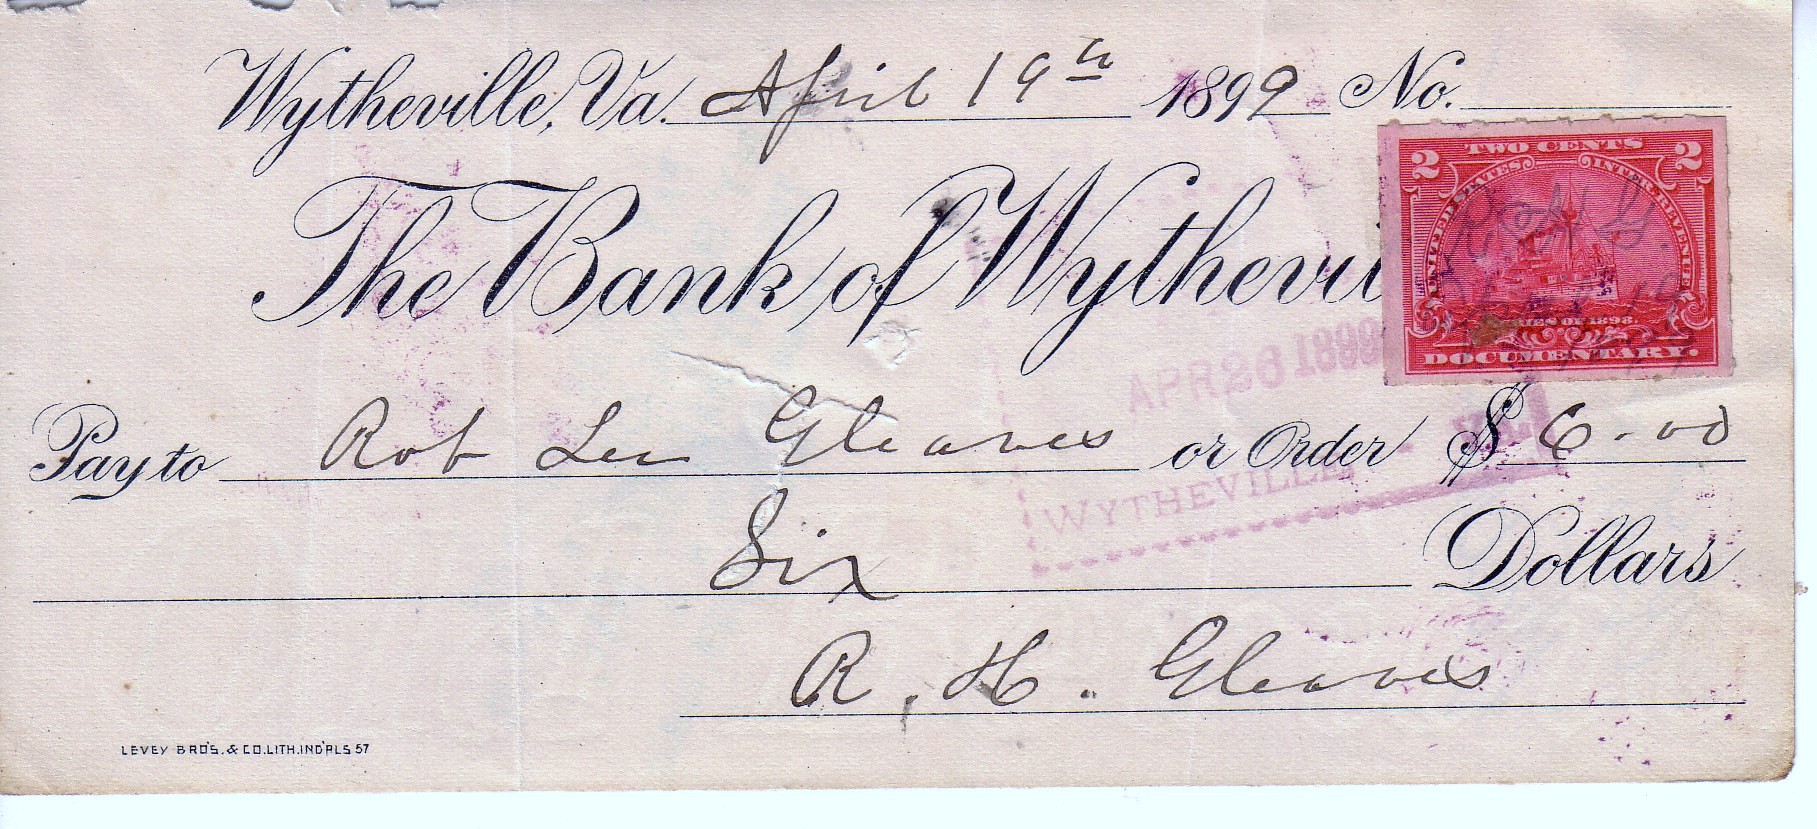 Wytheville, Va. April 19th 1899 No.
The Bank of Wythevi
2 TWO CENTS 2
UNITED STATES INTER. REVENUE
R H G.
SERIES OF 1898.
DOCUMENTARY.
APR 26 1899
Pay to Rob Lee Gleaves or Order $ 6.00
WYTHEVILLE
Six Dollars
R. H. Gleaves
LEVEY BRO'S. & CO. LITH. IND'PLS 57